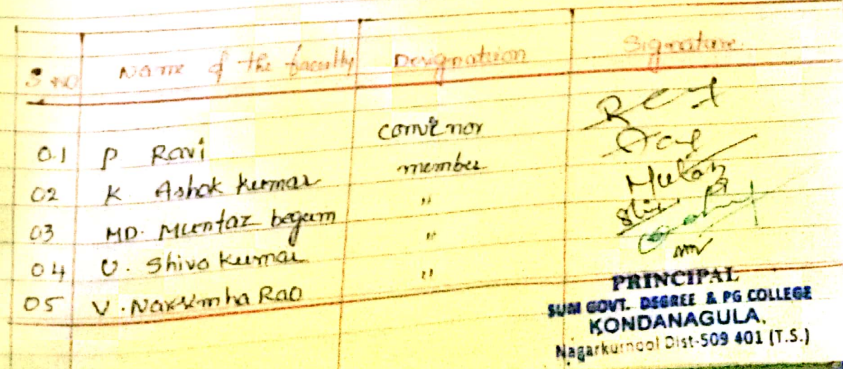 S.NO Name of the faculty Designation Signature
01 P Ravi convenor
02 K Ashok kumar member
03 MD. Mumtaz begum "
04 U. Shiva kumar "
05 V. Narsimha Rao "
PRINCIPAL
SUM GOVT. DEGREE & PG COLLEGE
KONDANAGULA,
Nagarkurnool Dist-509 401 (T.S.)